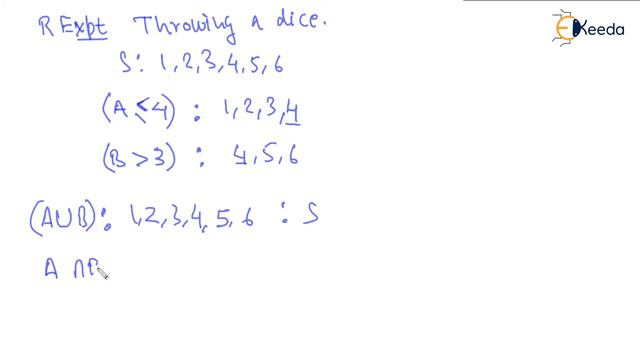 R Expt Throwing a dice.
S: 1, 2, 3, 4, 5, 6
(A ≤ 4) : 1, 2, 3, 4
(B > 3) : 4, 5, 6
(A∪B): 1, 2, 3, 4, 5, 6 : S
A ∩
Keeda